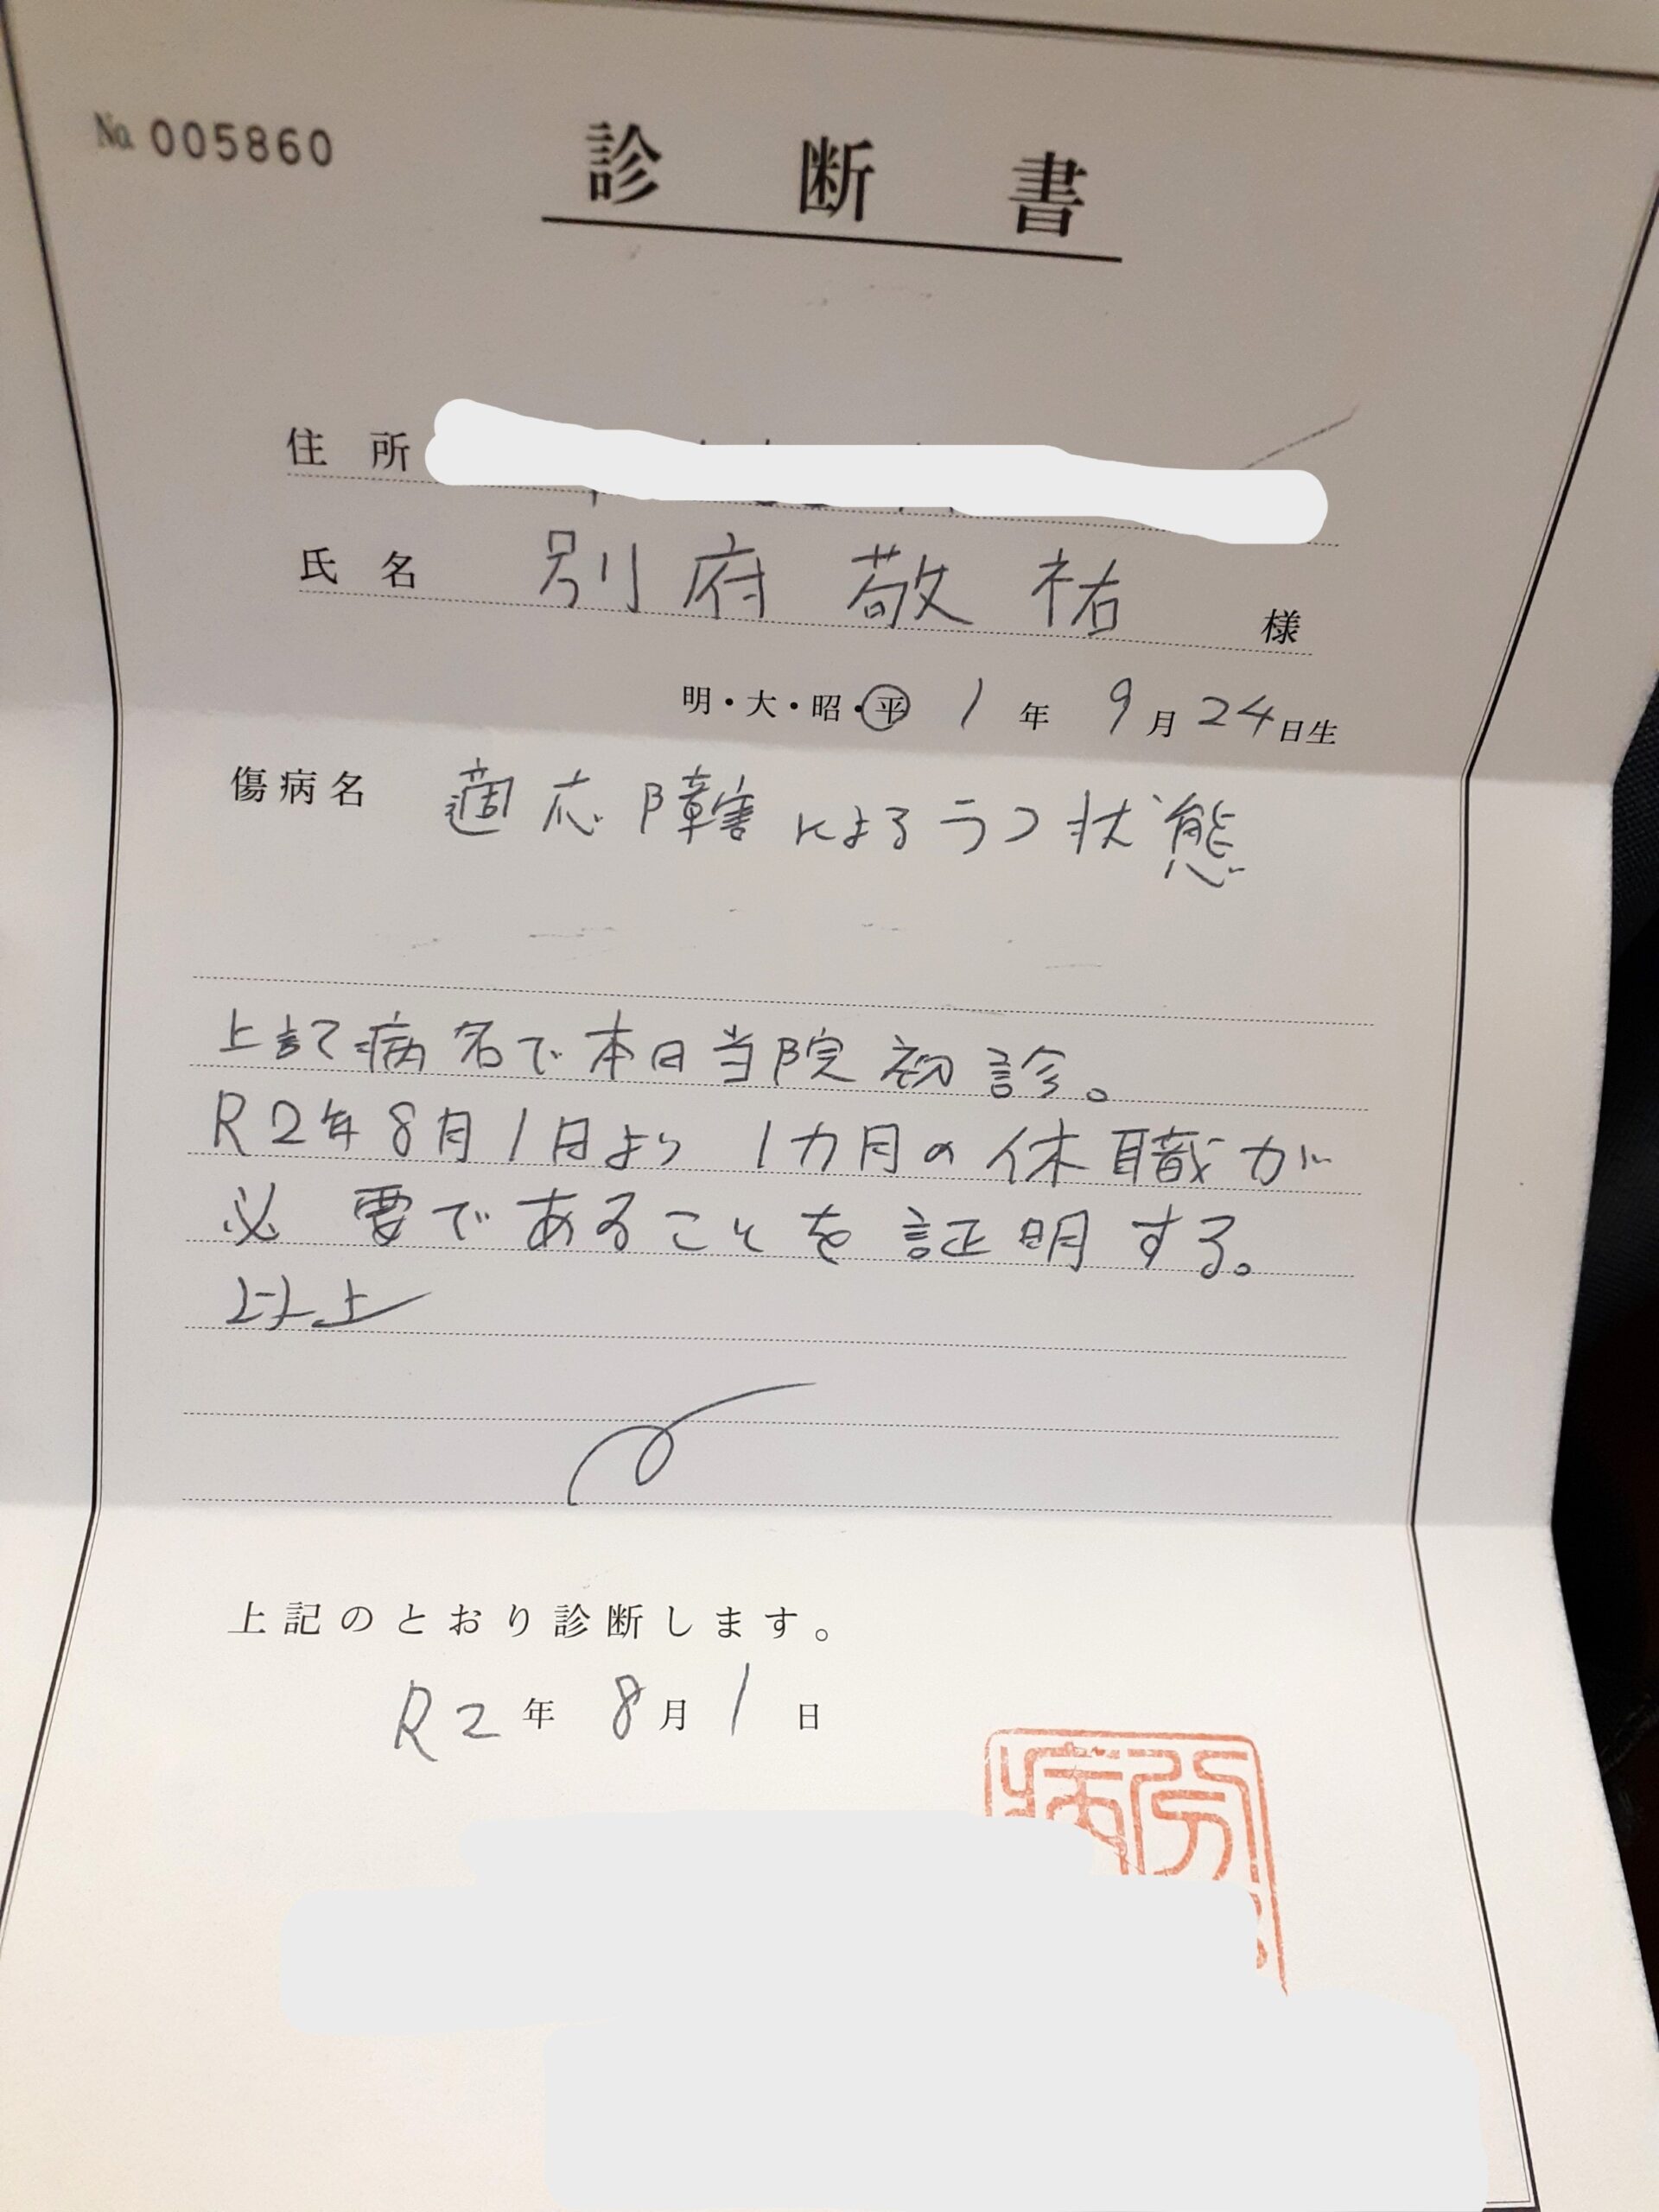 No. 005860
診断書
住所
氏名 別府 敬祐 様
明・大・昭・平 1年 9月 24日生
傷病名 適応障害によるうつ状態
上記病名で本日当院初診。
R2年8月1日より 1カ月の休職が
必要であることを証明する。
以上
上記のとおり診断します。
R2年 8月 1日